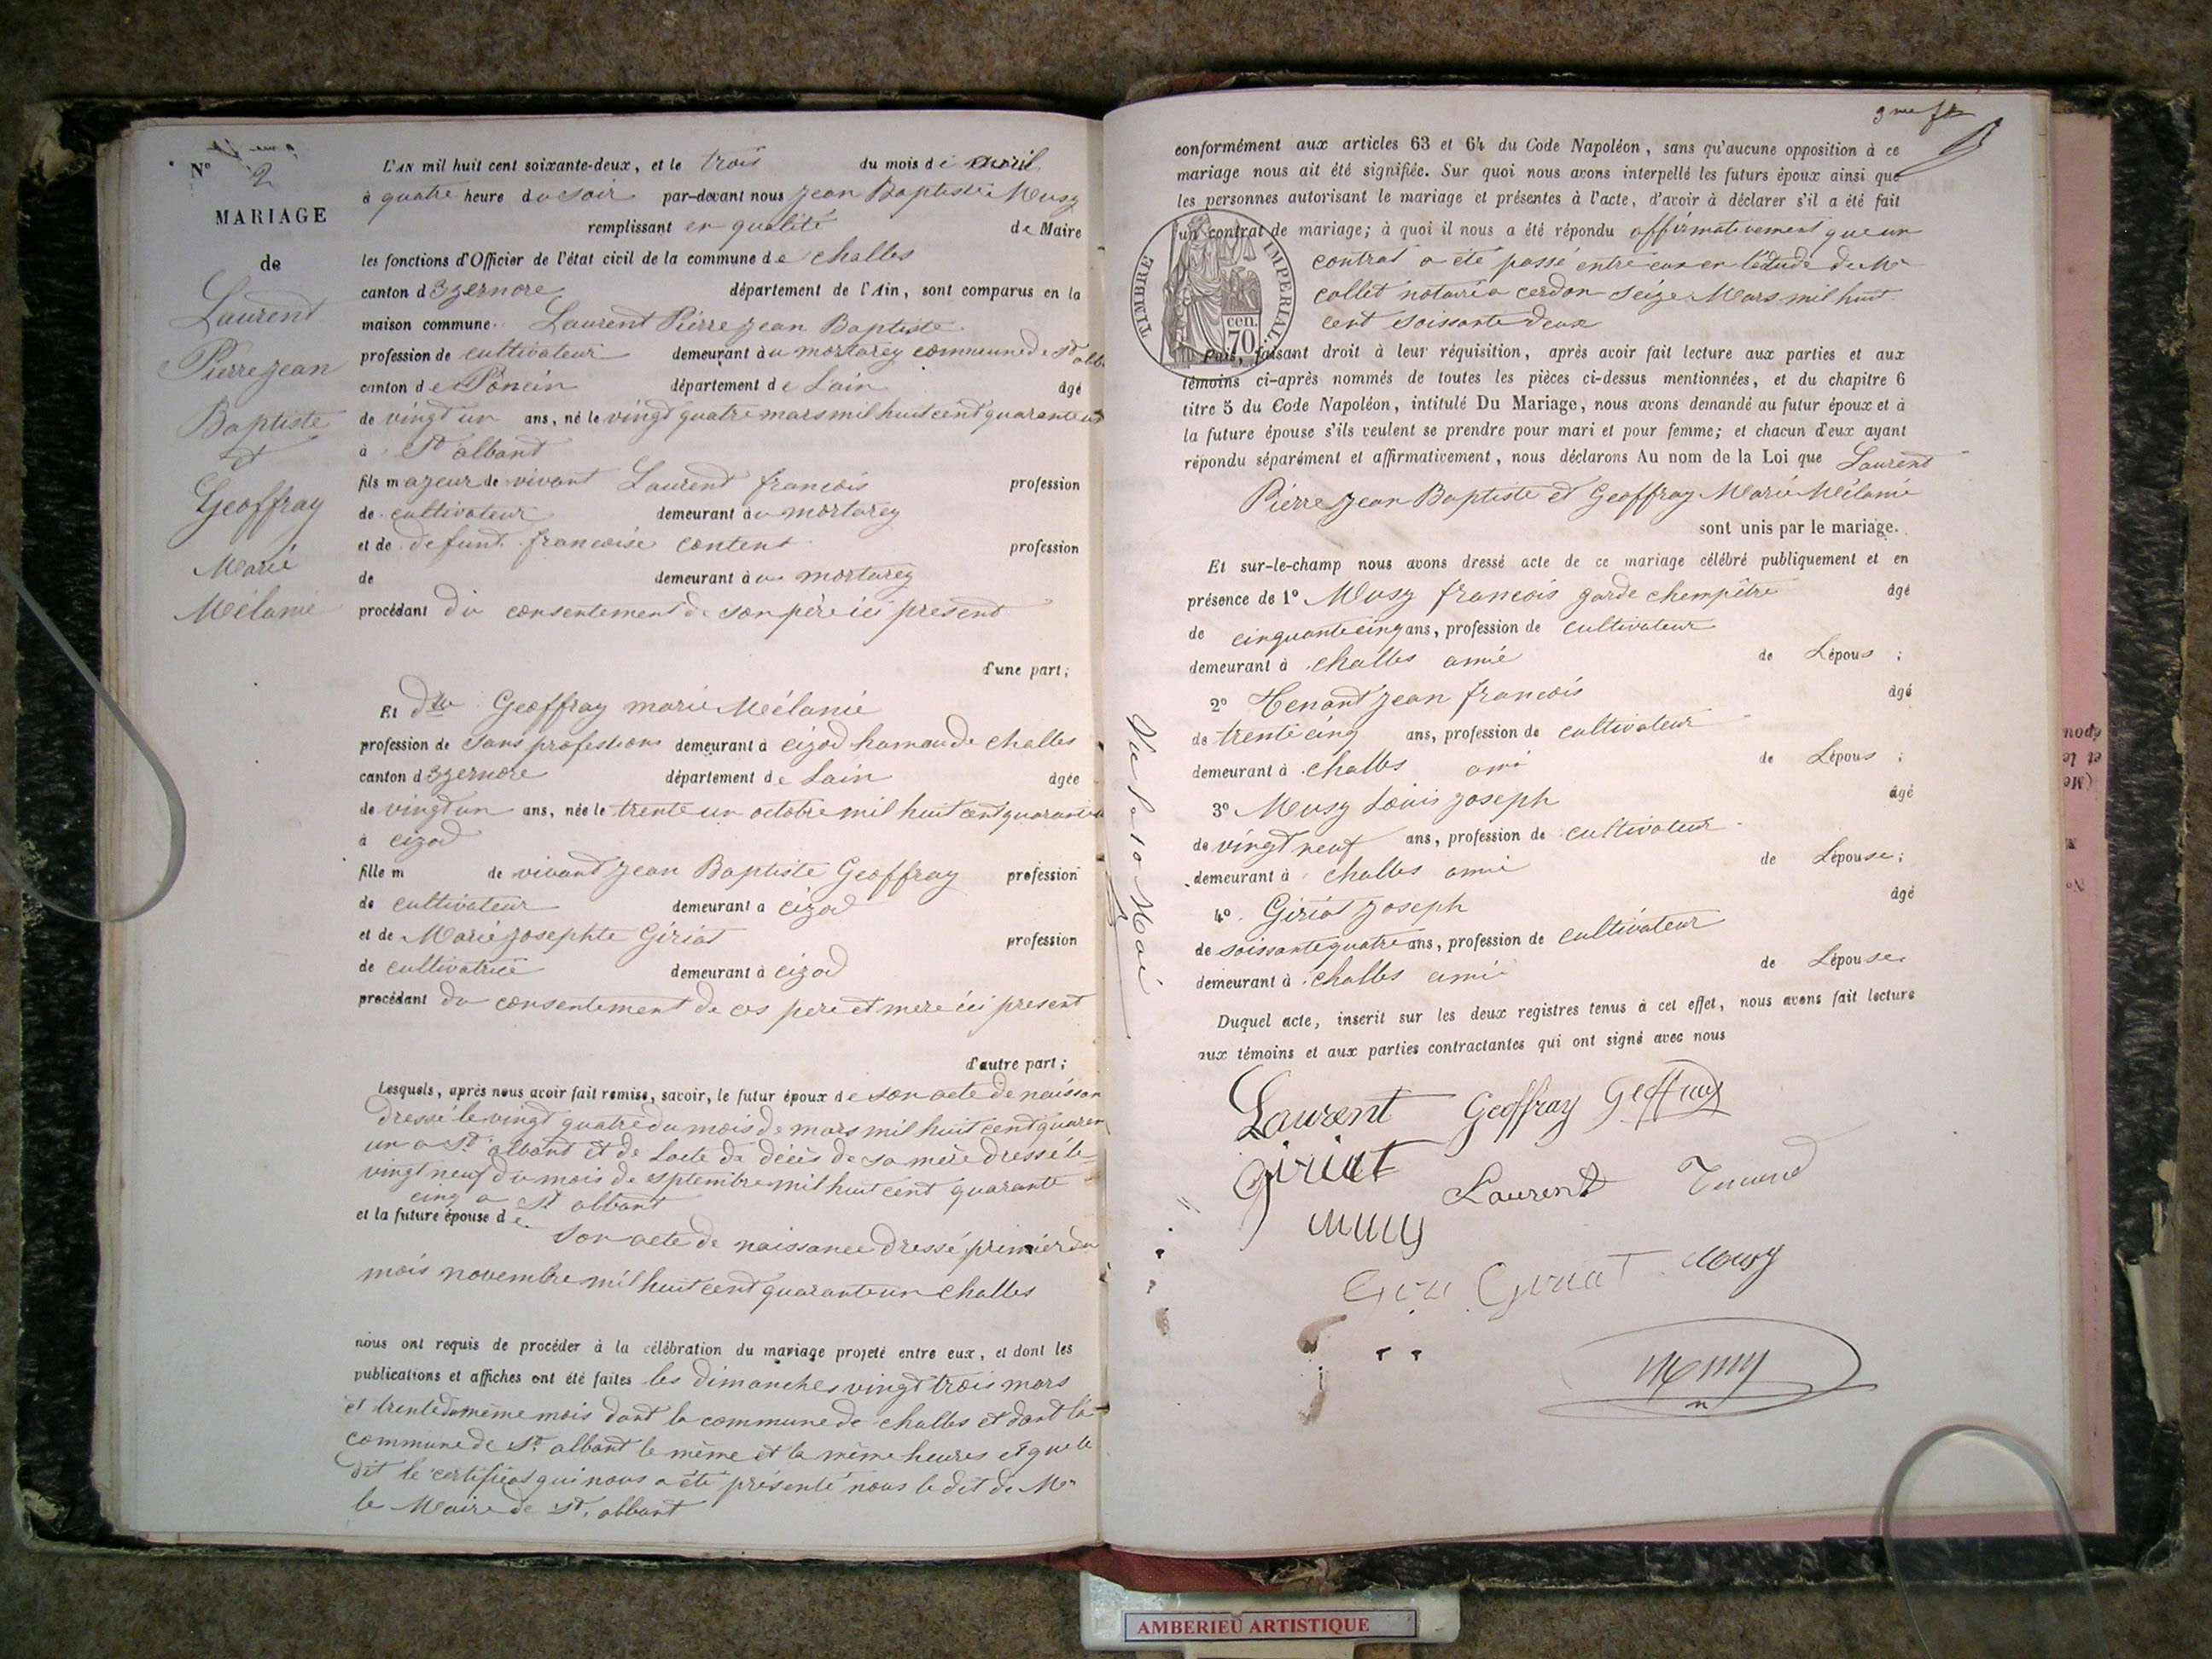 N° 2
MARIAGE
de
Laurent
Pierre jean
Baptiste
et
Geoffray
Marie
Mélanie
L'AN mil huit cent soixante-deux, et le trois du mois de avril
à quatre heure du soir par-devant nous jean Baptiste Musy
remplissant en qualité de Maire
les fonctions d'Officier de l'état civil de la commune de challes
canton d'Izernore département de l'Ain, sont comparus en la
maison commune Laurent Pierre jean Baptiste
profession de cultivateur demeurant au mortarey commune de St alb
canton de Poncin département de Lain âgé
de vingt un ans, né le vingt quatre mars mil huit cent quarante un
à St albant
fils majeur de vivant Laurent francois profession
de cultivateur demeurant au mortarey
et de defunt francoise content profession
de demeurant au mortarey
procédant du consentement de son père ici present
d'une part;
Et dlle Geoffray marie Mélanie
profession de sans professions demeurant à cizod hamau de challes
canton d'Izernore département de Lain âgée
de vingt un ans, née le trente un octobre mil huit cent quarante
à cizod
fille m de vivant jean Baptiste Geoffray profession
de cultivateur demeurant a cizod
et de Marie josephte Giriat profession
de cultivatrice demeurant à cizod
procédant du consentement de ces pere et mere ici present
d'autre part;
Lesquels, après nous avoir fait remise, savoir, le futur époux de son acte de naissan
dressé le vingt quatre du mois de mars mil huit cent quaran
un a St albant et de Lacte de décès de sa mère dressé le
vingt neuf du mois de septembre mil huit cent quarante
cinq a St albant
et la future épouse de
son acte de naissance dressé premier du
mois novembre mil huit cent quarante un challes
nous ont requis de procéder à la célébration du mariage projeté entre eux, et dont les
publications et affiches ont été faites les dimanches vingt trois mars
et trente du même mois dant la commune de challes et dant la
commune de St albant le même et la même heures et que le
dit le certificat qui nous a été présenté nous le dit de Mr
le Maire de St albant
3me ft
conformément aux articles 63 et 64 du Code Napoléon, sans qu'aucune opposition à ce
mariage nous ait été signifiée. Sur quoi nous avons interpellé les futurs époux ainsi que
les personnes autorisant le mariage et présentes à l'acte, d'avoir à déclarer s'il a été fait
un contrat de mariage; à quoi il nous a été répondu affirmativement que un
contrat a été passé entre eux en l'étude de Me
collet notaire a cerdon seize Mars mil huit
cent soissante deux
TIMBRE IMPERIAL
cen.
70
Puis, faisant droit à leur réquisition, après avoir fait lecture aux parties et aux
témoins ci-après nommés de toutes les pièces ci-dessus mentionnées, et du chapitre 6
titre 5 du Code Napoléon, intitulé Du Mariage, nous avons demandé au futur époux et à
la future épouse s'ils veulent se prendre pour mari et pour femme; et chacun d'eux ayant
répondu séparément et affirmativement, nous déclarons Au nom de la Loi que Laurent
Pierre jean Baptiste et Geoffray Marie Mélanie
sont unis par le mariage.
Et sur-le-champ nous avons dressé acte de ce mariage célébré publiquement et en
présence de 1° Musy francois garde chempêtre âgé
de cinquante cinq ans, profession de cultivateur
demeurant à challes amie de Lépous ;
2° Tenant jean francois âgé
de trente cinq ans, profession de cultivateur
demeurant à challes ami de Lépous ;
3° Musy Louis joseph âgé
de vingt neuf ans, profession de cultivateur
demeurant à challes amie de Lépouse ;
4° Giriat joseph âgé
de soissante quatre ans, profession de cultivateur
demeurant à challes amie de Lépouse
Duquel acte, inscrit sur les deux registres tenus à cet effet, nous avons fait lecture
aux témoins et aux parties contractantes qui ont signé avec nous
Laurent Geoffray Geoffray
Giriat Laurent
Musy
Giriat Musy
Musy
AMBERIEU ARTISTIQUE